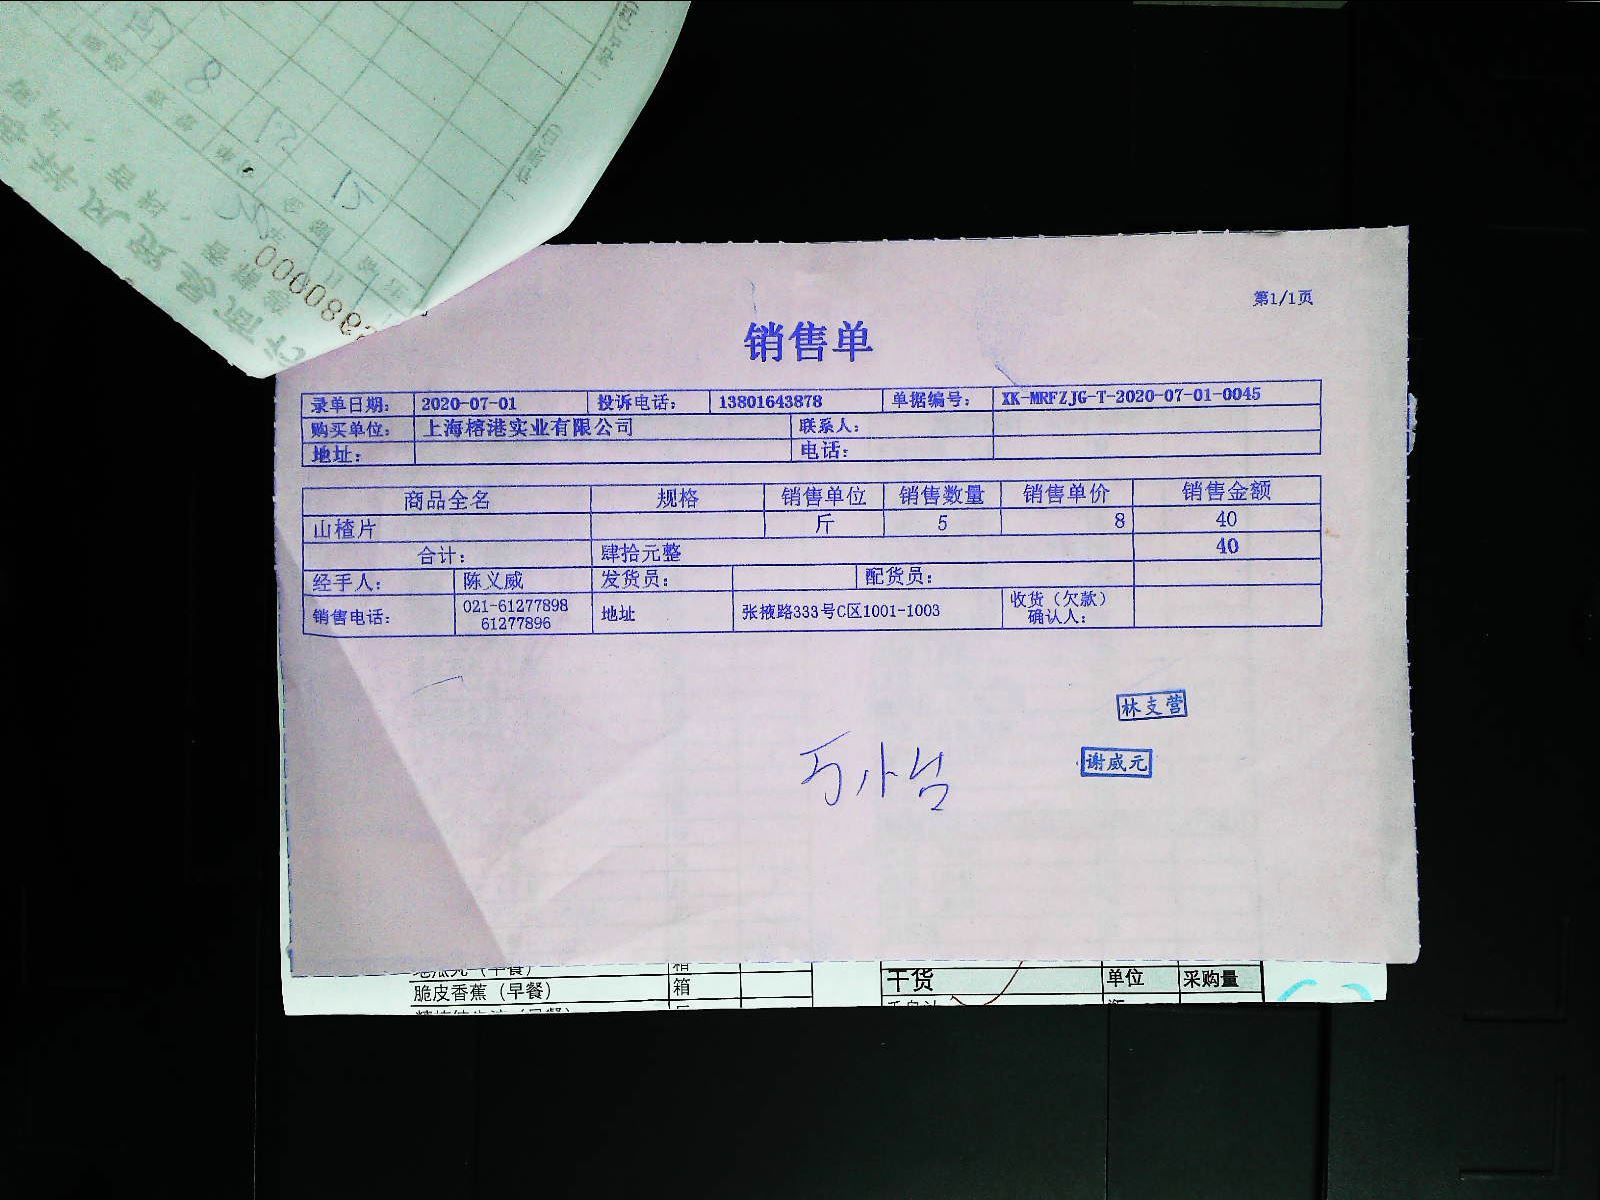 第1/1页
销售单
录单日期: 2020-07-01 投诉电话: 13801643878 单据编号: XK-MRFZJG-T-2020-07-01-0045
购买单位: 上海榕港实业有限公司 联系人:
地址: 电话:
商品全名 规格 销售单位 销售数量 销售单价 销售金额
山楂片 斤 5 8 40
合计: 肆拾元整 40
经手人: 陈义威 发货员: 配货员:
销售电话: 021-61277898 61277896 地址 张掖路333号C区1001-1003 收货(欠款)确认人:
林支营
谢威元
箱
干货 单位 采购量
脆皮香蕉(早餐) 箱